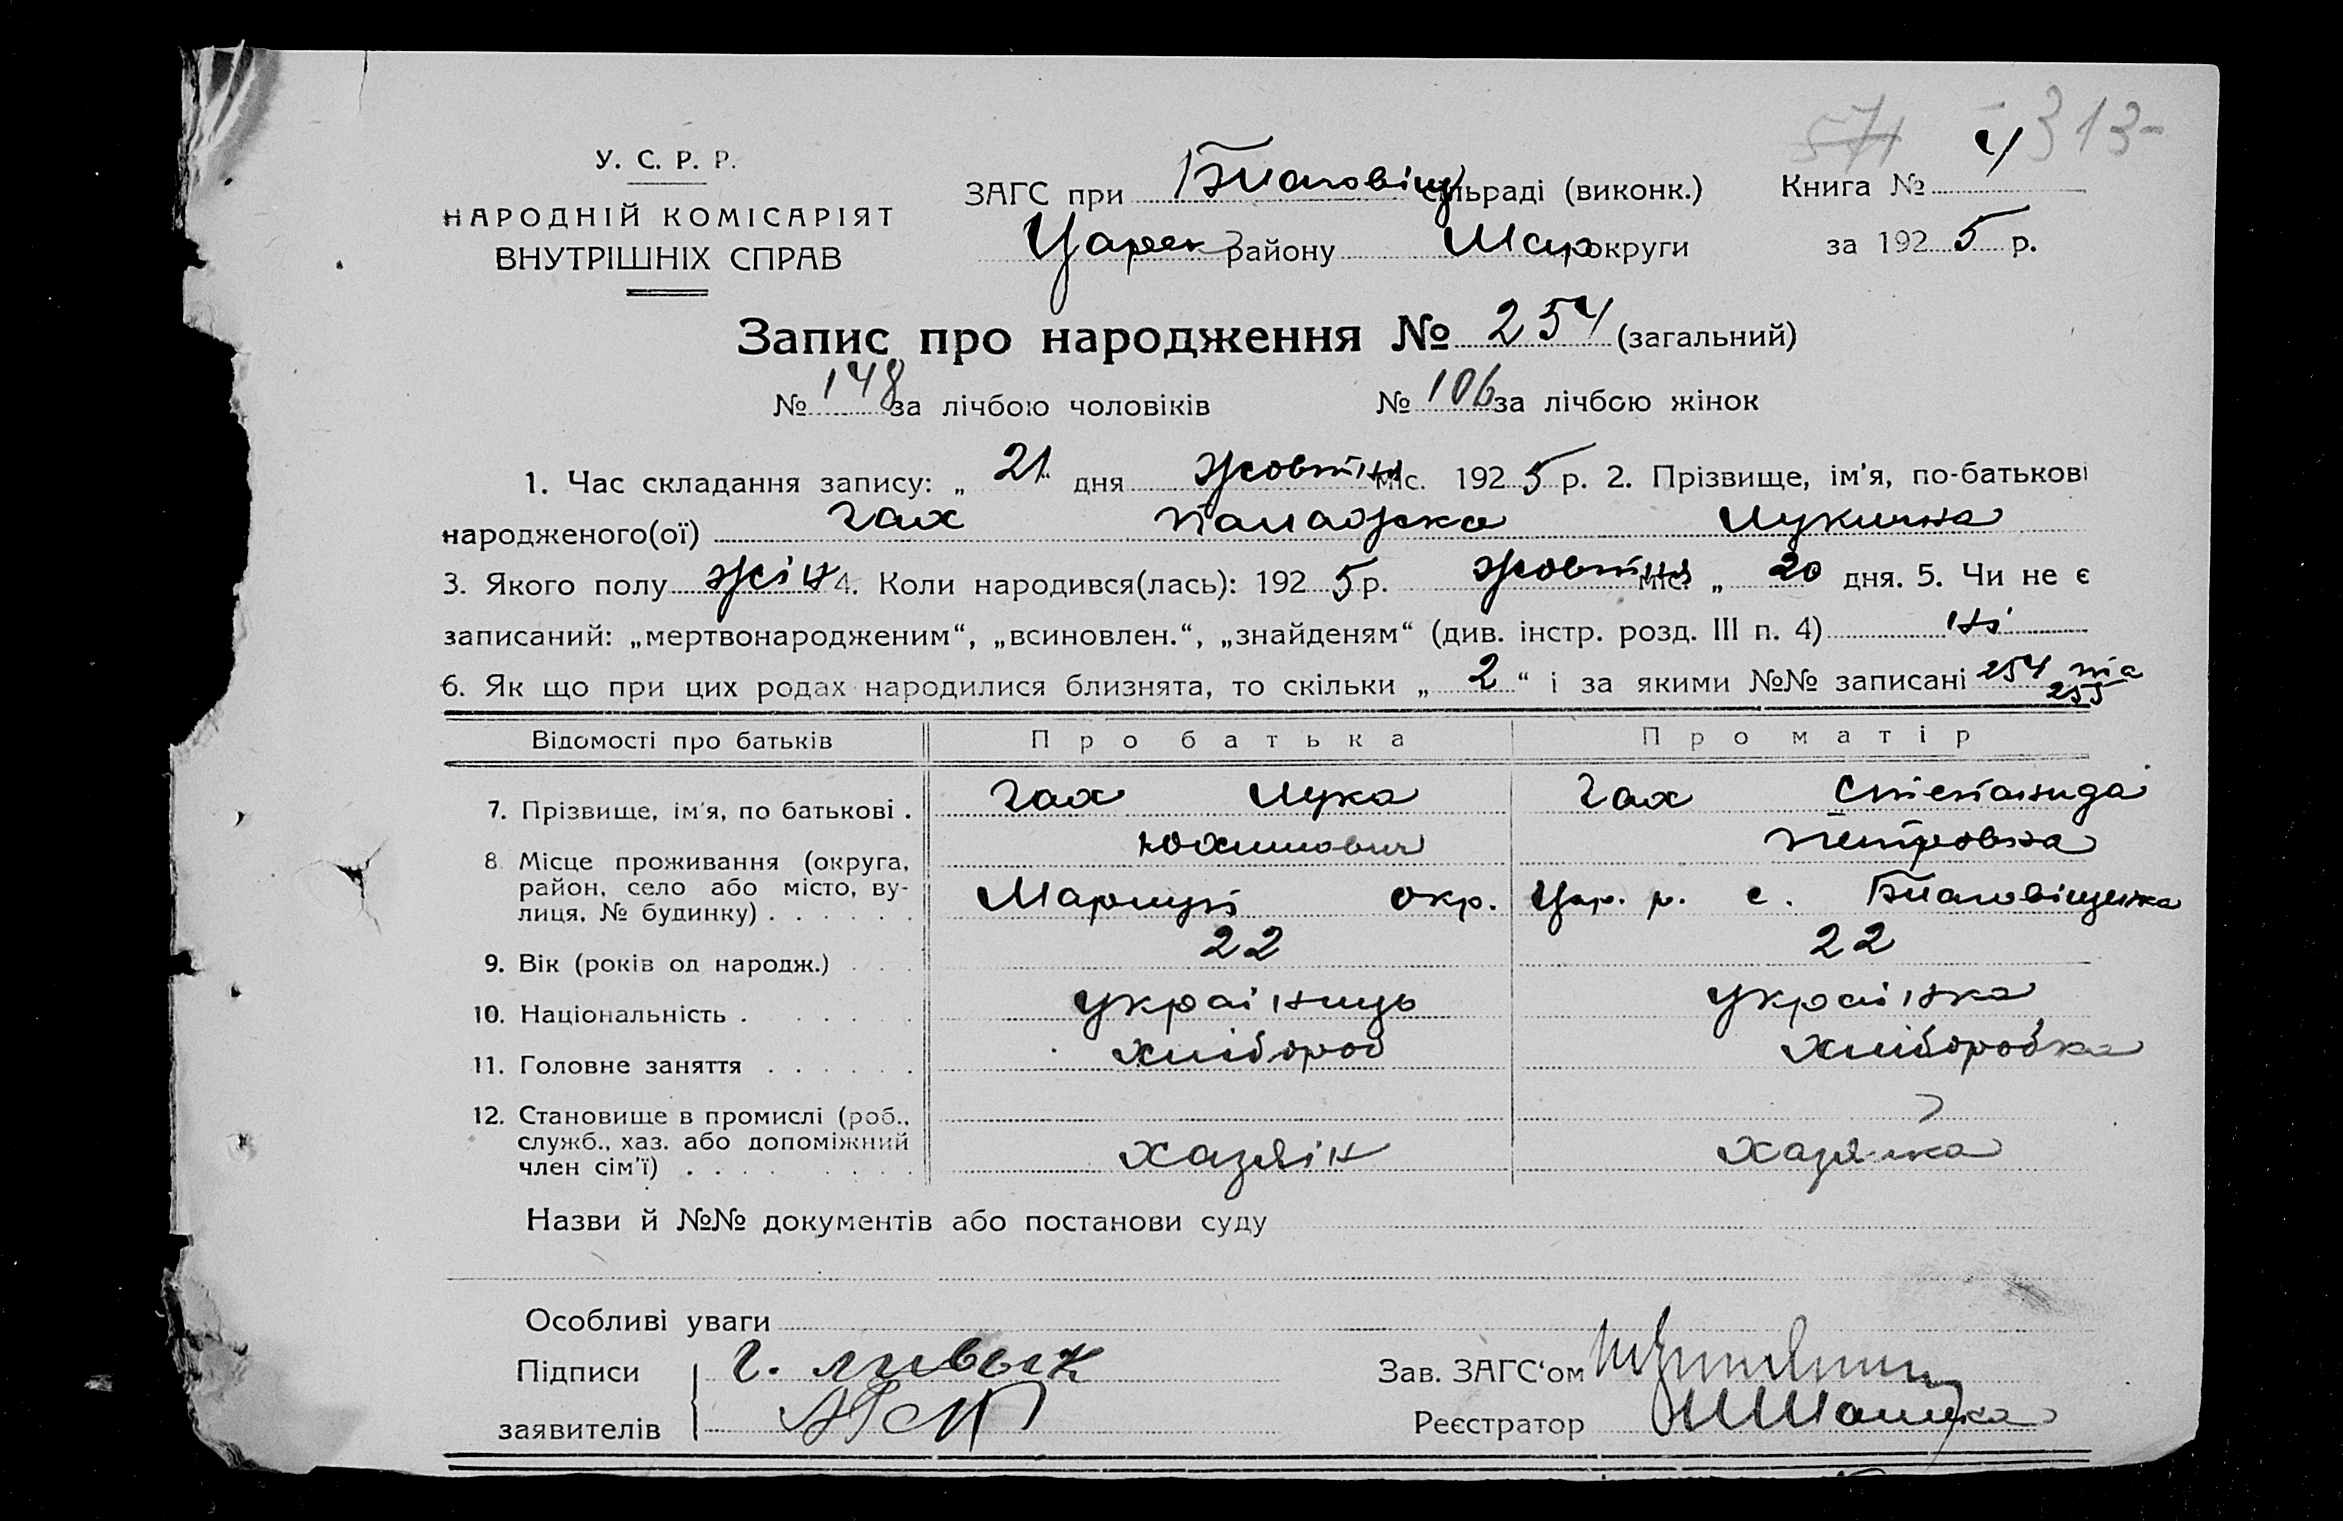 571 313-
У. С. Р. Р.
НАРОДНІЙ КОМІСАРІЯТ
ВНУТРІШНІХ СПРАВ
ЗАГС при Благовіщ сільраді (виконк.) Книга № 4
Царек району Мар округи за 1925 р.
Запис про народження № 254 (загальний)
№ 148 за лічбою чоловіків № 106 за лічбою жінок
1. Час складання запису: „ 21 " дня жовтня міс. 1925 р. 2. Прізвище, ім'я, по-батькові
народженого(ої) Гах Палажка Лукична
3. Якого полу жін 4. Коли народився(лась): 1925 р. жовтня міс. „ 20 дня. 5. Чи не є
записаний: „мертвонародженим“, „всиновлен.“, „знайденям“ (див. інстр. розд. III п. 4) ні
6. Як що при цих родах народилися близнята, то скільки „ 2 “ і за якими №№ записані 254 та 255
Відомості про батьків Про батька Про матір
7. Прізвище, ім'я, по батькові . Гах Лука Юхимович Гах Степанида Петровна
8. Місце проживання (округа, район, село або місто, вулиця, № будинку) . . . . . . Маріуп окр. Цар. р. с. Благовіщенка
9. Вік (років од народж.) . . . 22 22
10. Національність . . . . . . українець українка
11. Головне заняття . . . . . . хлібороб хліборобка
12. Становище в промислі (роб., служб., хаз. або допоміжний член сім'ї) . . . . . . . . хазяін хазяйка
Назви й №№ документів або постанови суду
Особливі уваги
Підписи заявителів
Зав. ЗАГС‘ом
Реєстратор